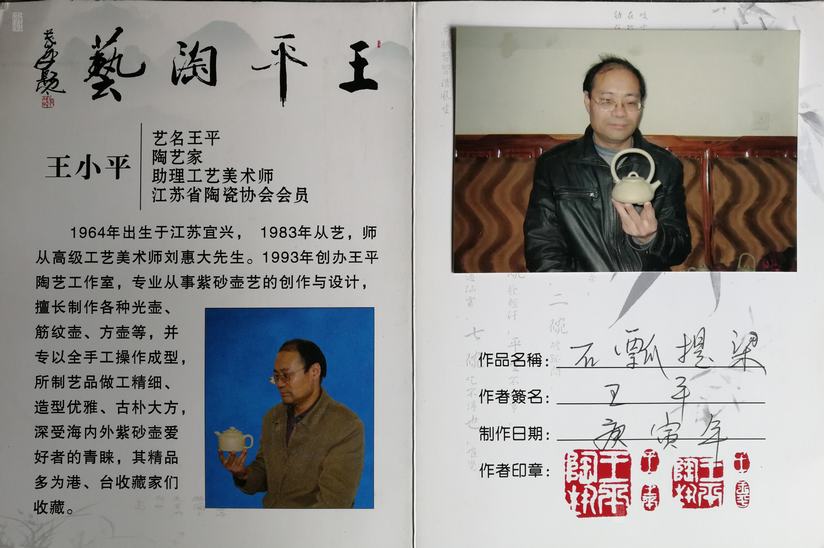 王平陶藝
王小平
艺名王平
陶艺家
助理工艺美术师
江苏省陶瓷协会会员
1964年出生于江苏宜兴，1983年从艺，师
从高级工艺美术师刘惠大先生。1993年创办王平
陶艺工作室，专业从事紫砂壶艺的创作与设计，
擅长制作各种光壶、
筋纹壶、方壶等，并
专以全手工操作成型，
所制艺品做工精细、
造型优雅、古朴大方，
深受海内外紫砂壶爱
好者的青睐，其精品
多为港、台收藏家们
收藏。
作品名稱：石瓢提梁
作者簽名：王平
制作日期：庚寅年
作者印章：